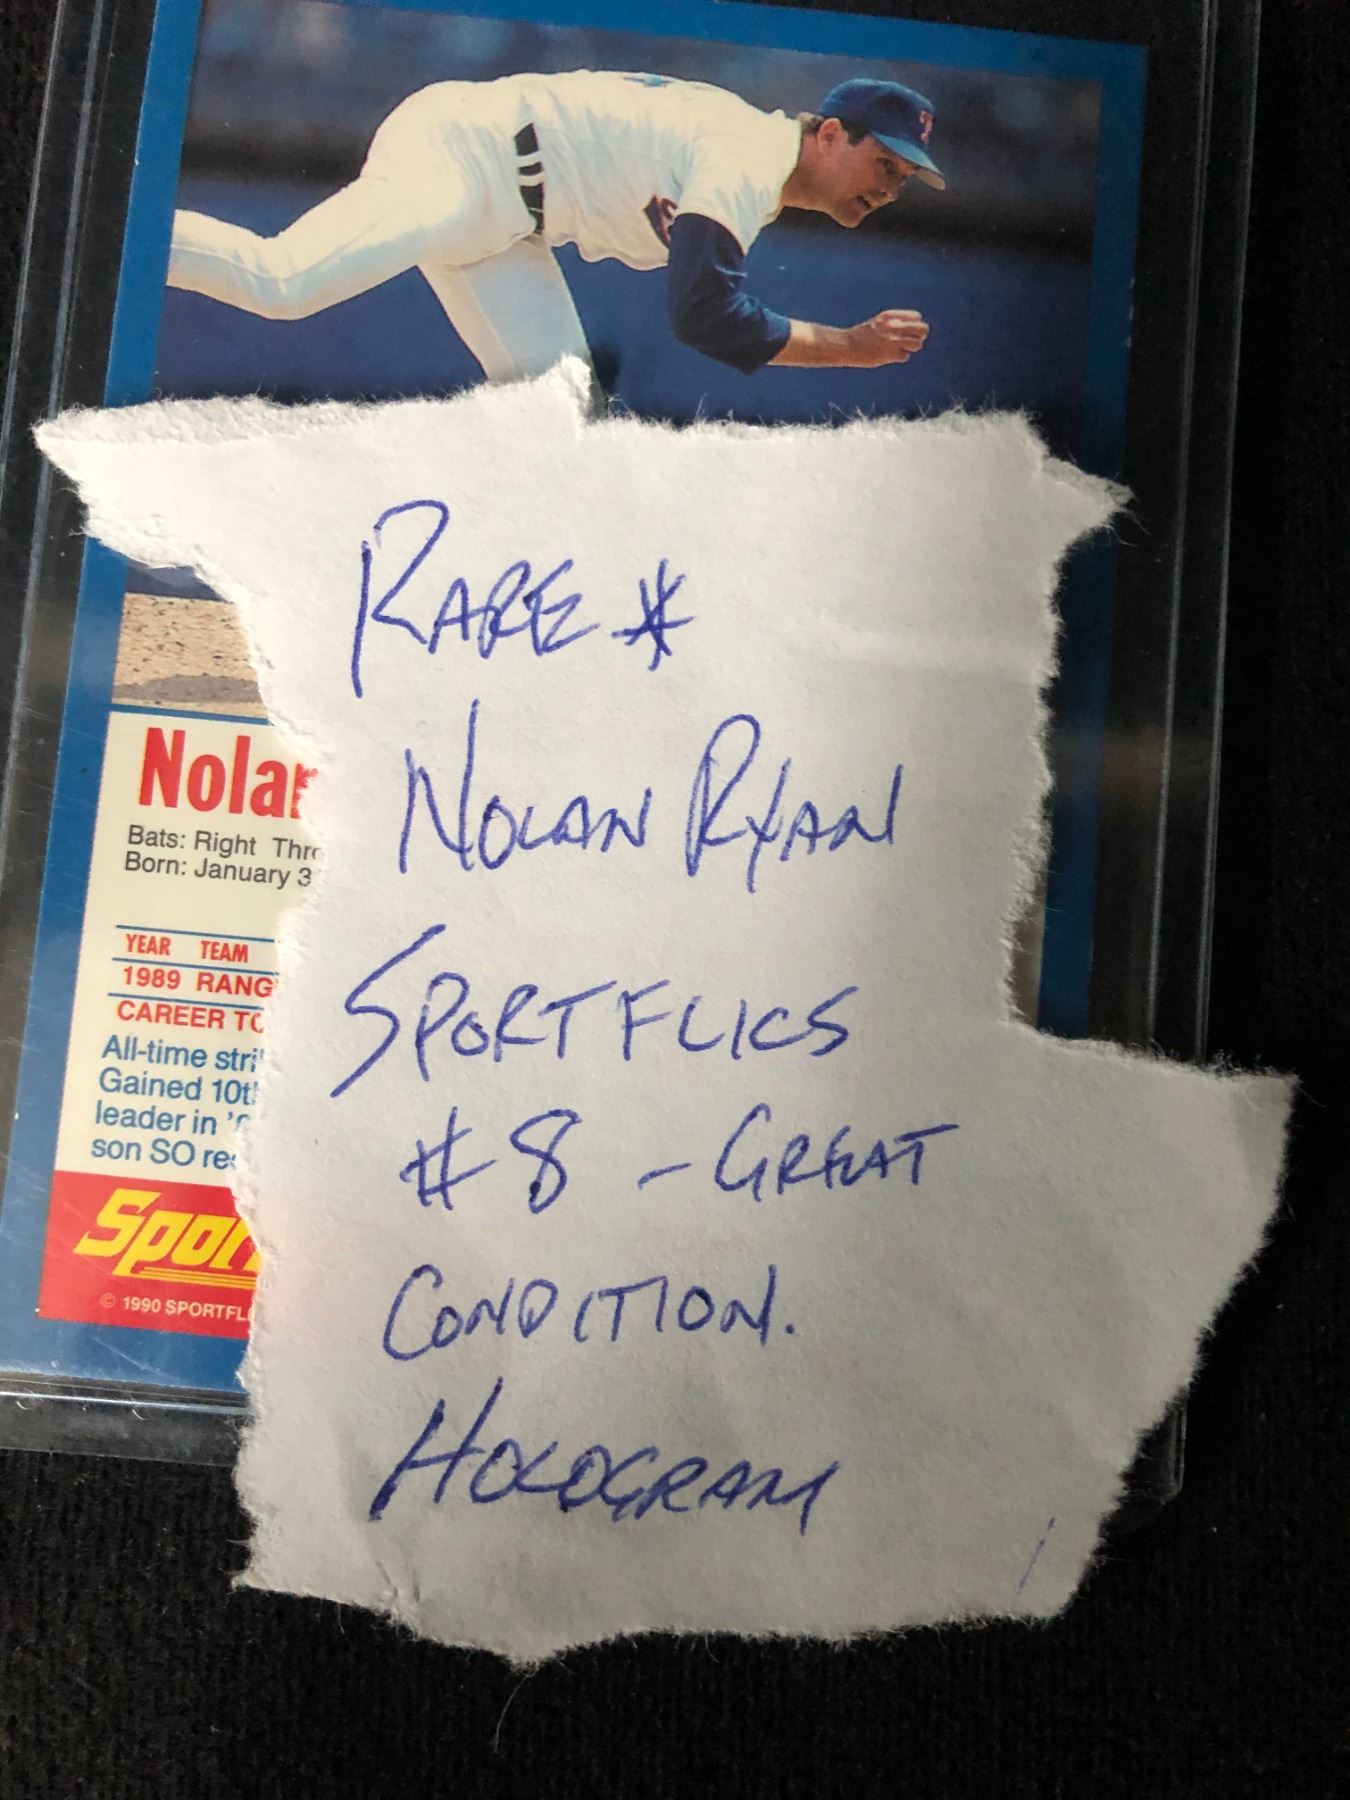 Nolan
Bats: Right Thro
Born: January 3
YEAR TEAM
1989 RANG
CAREER TO
All-time stri
Gained 10t
leader in '
son SO re
Spor
© 1990 SPORTFLI
RARE *
NOLAN RYAN
SPORTFLICS
#8 - GREAT
CONDITION.
HOLOGRAM